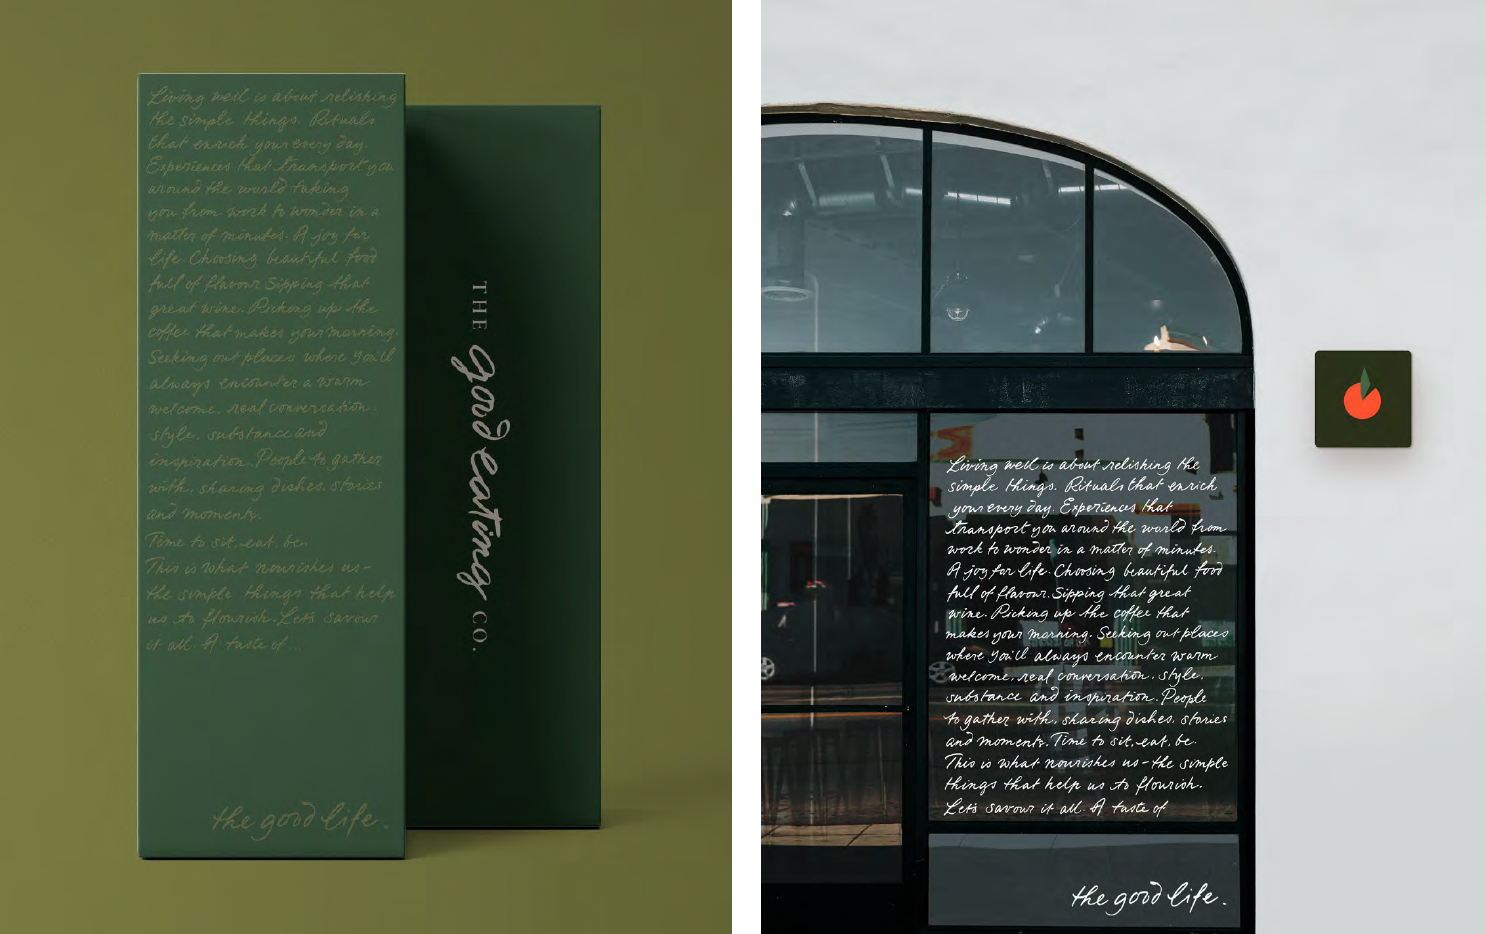 Living well is about relishing
the simple things. Rituals
that enrich your every day.
Experiences that transport you
around the world taking
you from work to wonder in a
matter of minutes. A joy for
life. Choosing beautiful food
full of flavour. Sipping that
great wine. Picking up the
coffee that makes your morning.
Seeking out places where you'll
always encounter a warm
welcome, real conversation,
style, substance and
inspiration. People to gather
with, sharing dishes, stories
and moments.
Time to sit, eat, be.
This is what nourishes us-
the simple things that help
us to flourish. Let's savour
it all. A taste of...
the good life.
THE good eating CO.
Living well is about relishing the
simple things. Rituals that enrich
your every day. Experiences that
transport you around the world from
work to wonder in a matter of minutes.
A joy for life. Choosing beautiful food
full of flavour. Sipping that great
wine. Picking up the coffee that
makes your morning. Seeking out places
where you'll always encounter warm
welcome, real conversation, style,
substance and inspiration. People
to gather with, sharing dishes, stories
and moments. Time to sit, eat, be.
This is what nourishes us-the simple
things that help us to flourish.
Let's savour it all. A taste of
the good life.